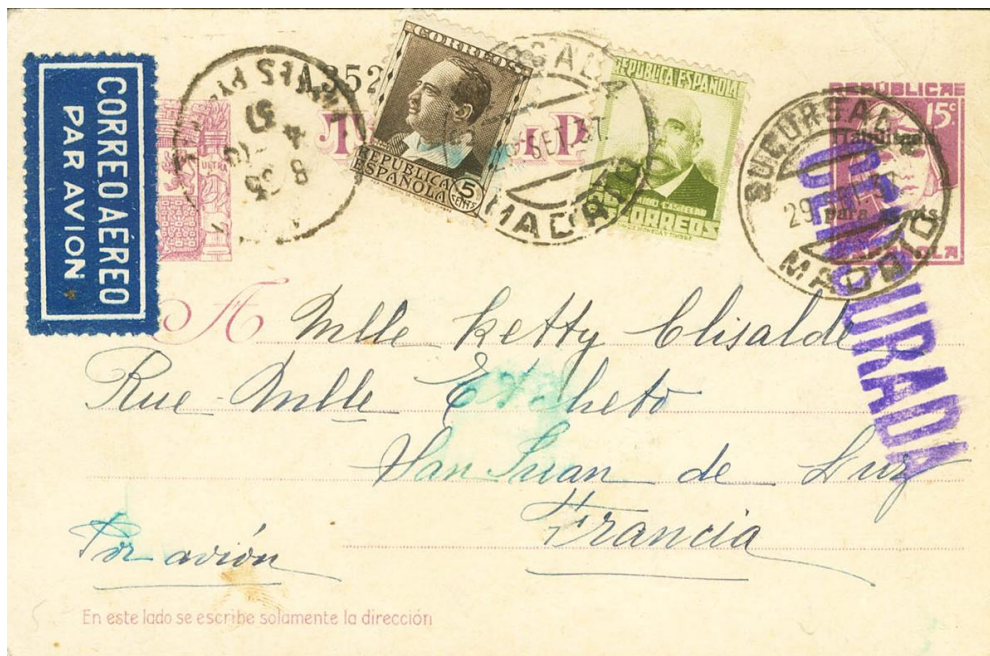 CORREO AÉREO
PAR AVION
A352
CORREOS
REPUBLICA
ESPAÑOLA
5
CENTS
REPUBLICA ESPAÑOLA
CORREOS
REPUBLICA
15c.
SUCURSAL
MADRID
SET.37
MADRID
29
CENSURADA
ULTRA
A Mlle Ketty Elisalde
Rue Mlle Etcheto
San Juan de Luz
Francia
Por avión
En este lado se escribe solamente la dirección